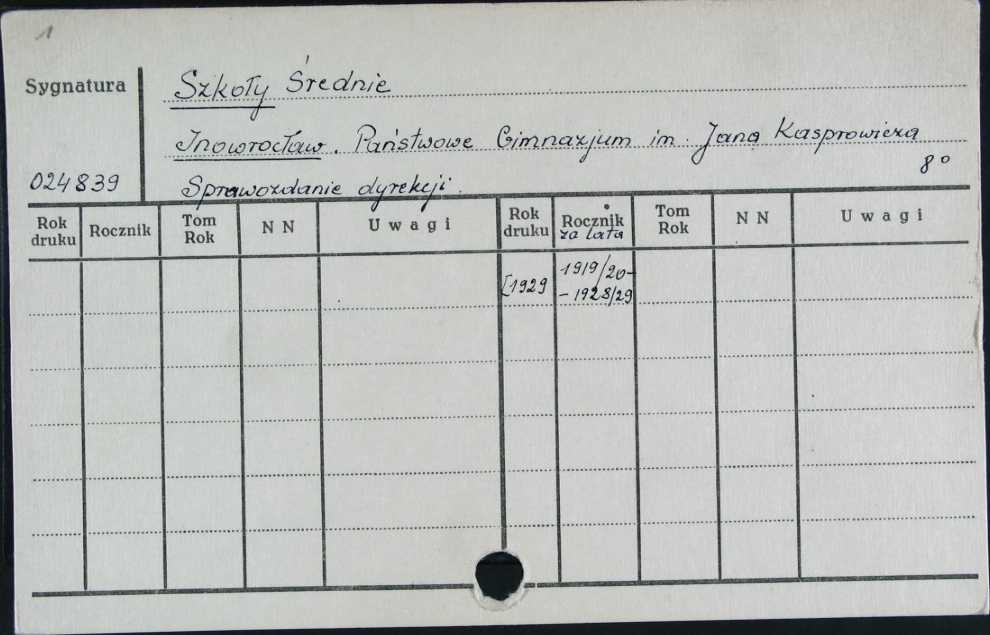 1
Sygnatura
Szkoły Średnie
Inowrocław. Państwowe Gimnazjum im. Jana Kasprowicza
8°
024839
Sprawozdanie dyrekcji.
Rok druku Rocznik Tom Rok N N Uwagi Rok druku Rocznik za lata Tom Rok N N Uwagi
[1929 1919/20-
- 1928/29